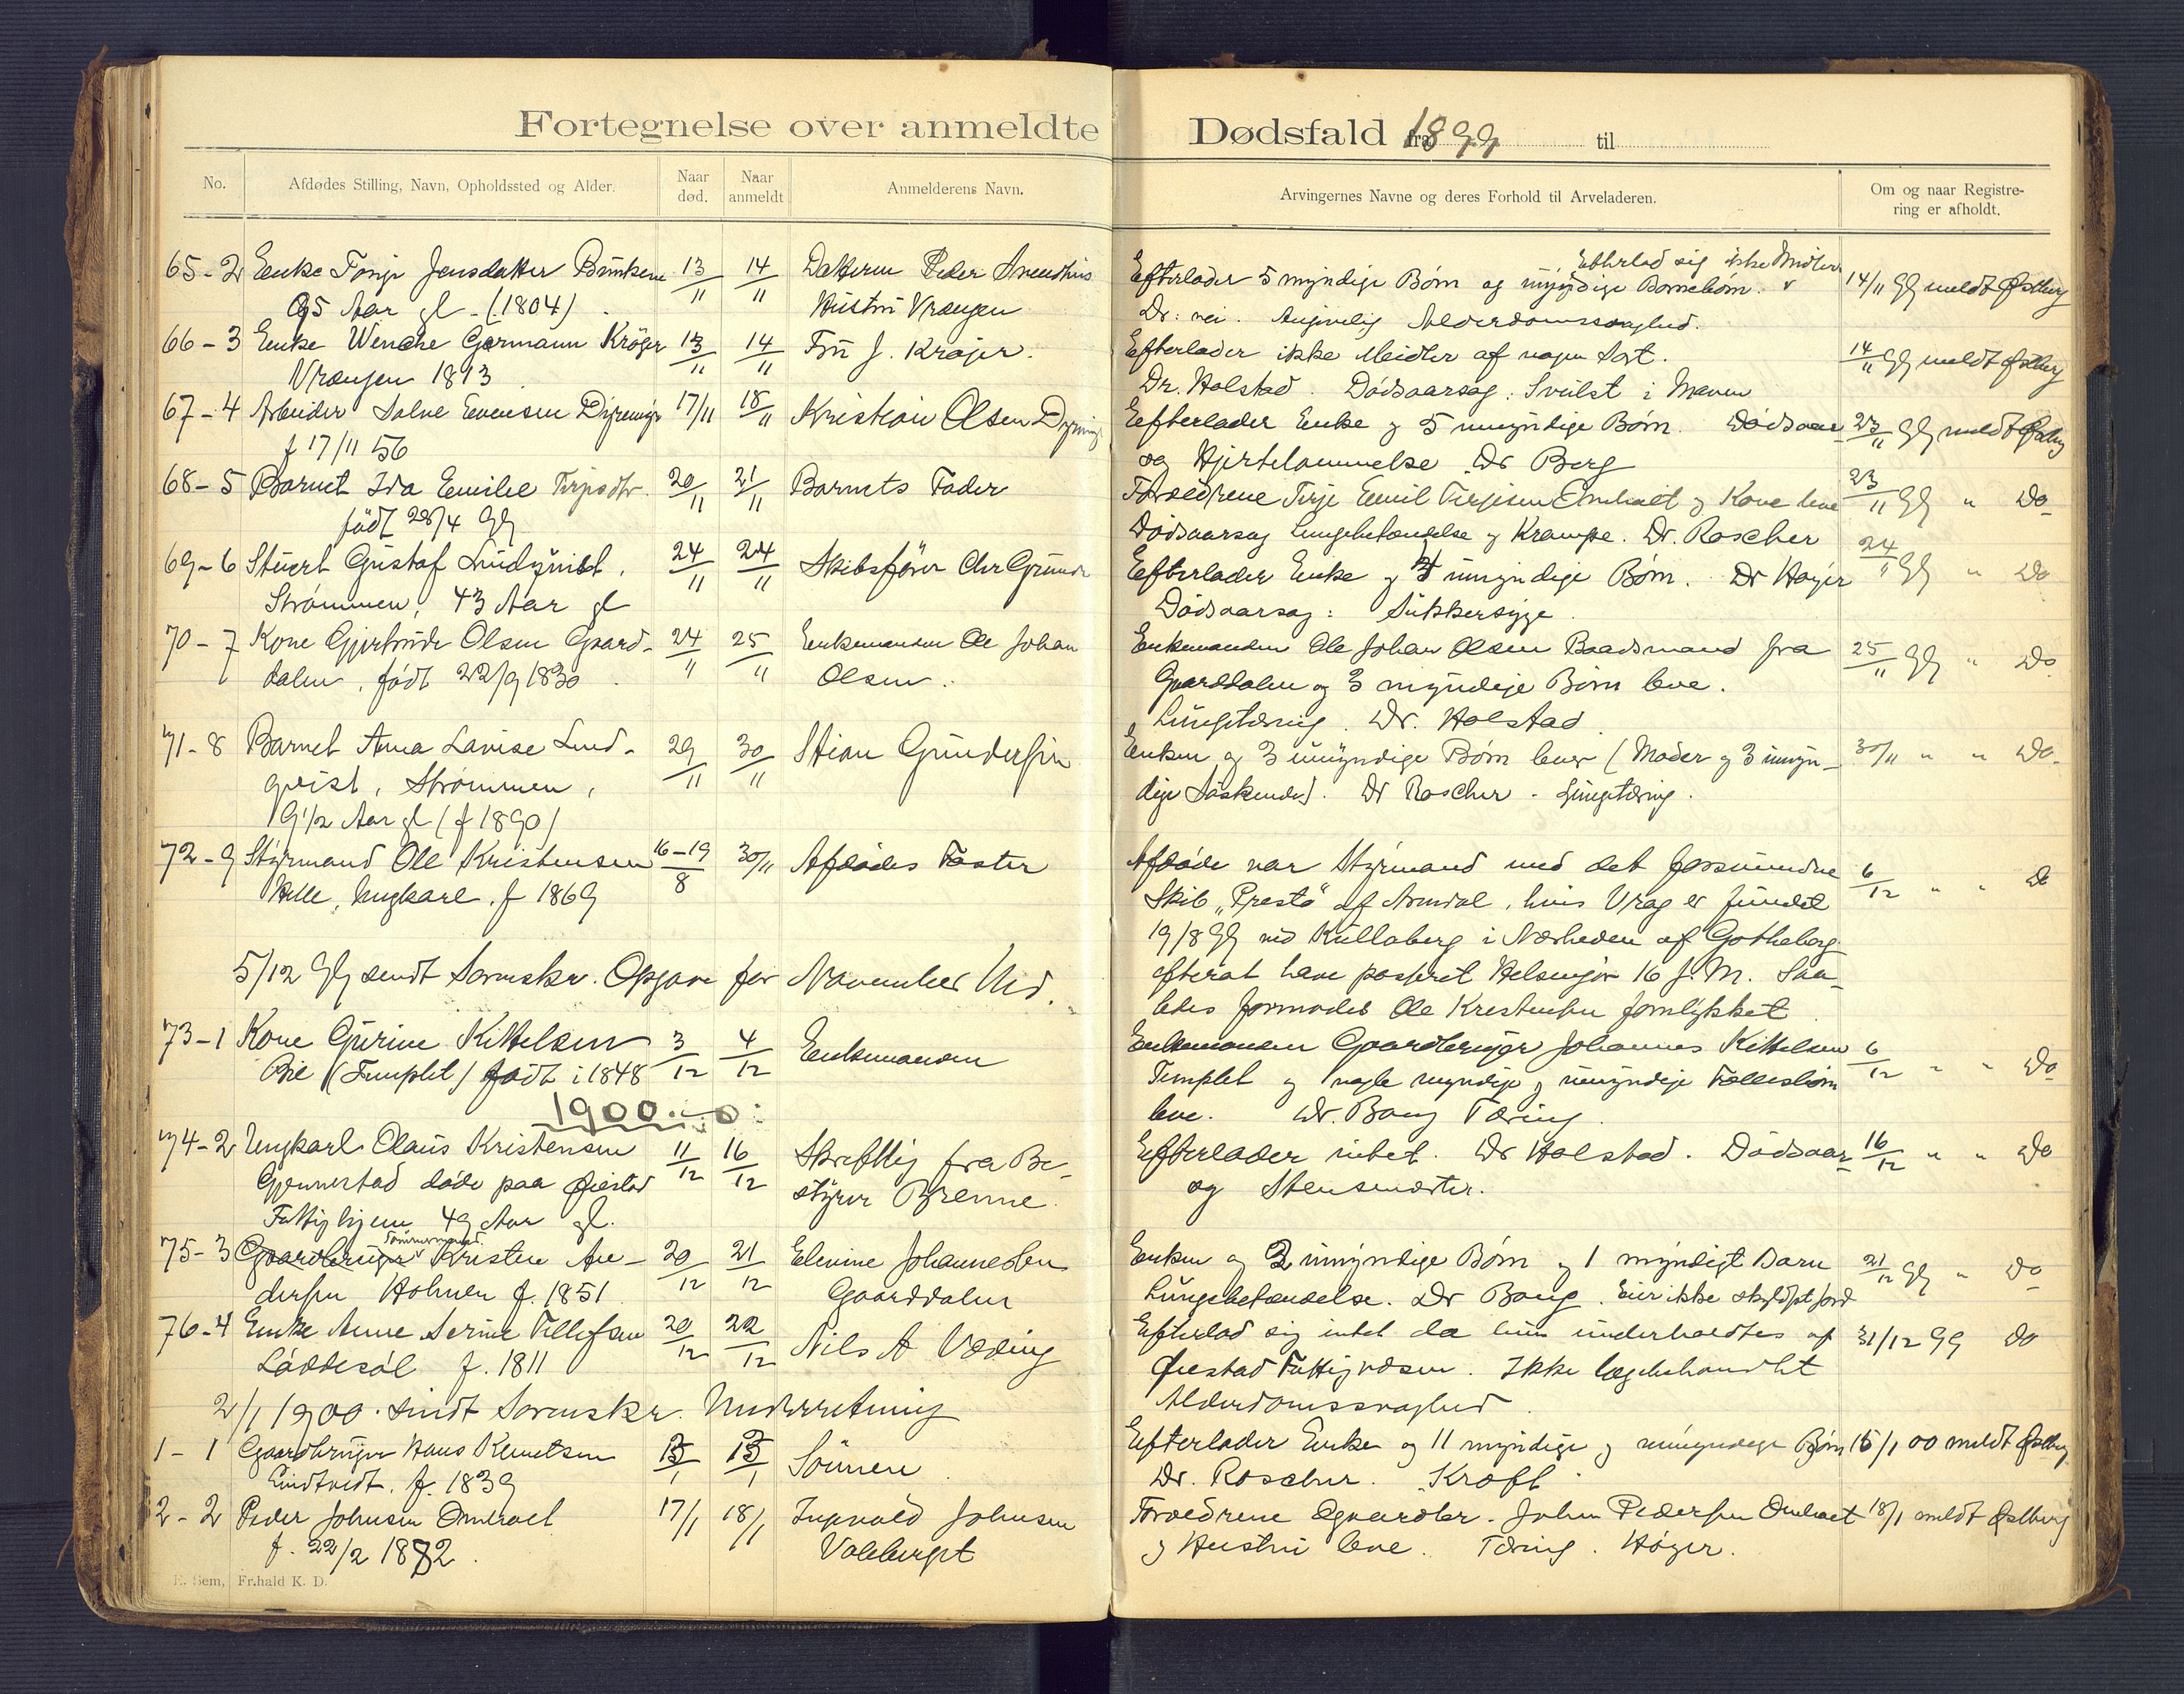 Fortegnelse over anmeldte Dødsfald fra 1899 til
No. Afdødes Stilling, Navn, Opholdssted og Alder. Naar død. Naar anmeldt Anmelderens Navn. Arvingernes Navne og deres Forhold til Arveladeren. Om og naar Registrering er afholdt.
65-2 Enke Jensdatter 13/11 14/11 Datteren Peder
95 Aar gl. (1804) Hustru Vrængen
Efterlod sig ikke Midler
Efterlader 5 myndige Børn og myndige Børnebørn. 14/11 99 meldt Østberg
Dr: nei. Angivelig Alderdomssvaghed.
66-3 Enke Wenche Germann Krøger 13/11 14/11 Fru J. Krøjer.
Vrængen 1813
Efterlader ikke Meidler af nogen Sort. 14/11 99 meldt Østberg
Dr. Holstad. Dødsaarsag: Svulst i Maven
67-4 Arbeider Salve Evensen 17/11 18/11 Kristian Olsen
f 17/11 56
Efterlader Enke og 5 umyndige Børn. Dødsaar 23/11 99 meldt Østberg
og Hjertelammelse Dr Berg
68-5 Barnet Ida Emilie Terjesdtr. 20/11 21/11 Barnets Fader
født 28/4 99
Forældrene Terje Emil Terjesen Omholt og Kone leve 23/11 99 " Do
Dødsaarsag Lungebetændelse og Krampe. Dr. Roscher
69-6 Stuert Gustaf Lindqvist, 24/11 24/11 Skibsfører Chr
Strømmen, 43 Aar gl
Efterlader Enke og 4 umyndige Børn. Dr Høyer 24/11 99 " Do
Dødsaarsag: Sukkersyge.
70-7 Kone Gjertrude Olsen Gaard- 24/11 25/11 Enkemanden Ole Johan
dalen, født 22/9 1830 Olsen.
Enkemanden Ole Johan Olsen Baadsmand fra 25/11 99 " Do
Gaarddalen og 3 myndige Børn leve.
Lungetæring. Dr. Holstad
71-8 Barnet Anna Lavise Lind- 29/11 30/11 Stian Gundersen
qvist, Strømmen,
9 1/2 Aar gl (f 1890)
Enken og 3 umyndige Børn lever (Moder og 3 umyn- 30/11 " " Do
dige Søskende). Dr Roscher - Lungetæring.
72-9 Styrmand Ole Kristensen 16-19/8 30/11 Afdødes Faster
Hille, Ungkarl. f 1869
Afdøde var Styrmand med det forsvundne 6/12 " " Do
Skib "Presto" af Arendal, hvis Vrag er fundet
19/8 99 ved Kullaberg i Nærheden af Gotheborg
efterat have passeret Helsingør 16 f. M. Saa-
ledes formodes Ole Kristensen forulykket
5/12 99 sendt Sorenskr. Opgave for November Md.
73-1 Kone Gurine Kittelsen 3/12 4/12 Enkemanden
Bie (Templet) født i 1848
Enkemanden Gaardbruger Johannes Kittelsen 6/12 " " Do
Templet og nogle myndige og umyndige Fællesbørn
leve. Dr. Bang Tæring.
1900
74-2 Ungkarl Claus Kristensen 11/12 16/12 Skriftlig fra Be-
Gjennestad døde paa Øiestad styrer Brenne.
Fattighjem 49 Aar gl.
Efterlader intet. Dr Holstad. Dødsaar 16/12 " " Do
og Stensmerter.
75-3 Gaardbruger Tømmermand Kristen An- 20/12 21/12 Elevine Johannesen
dersen Holmen f. 1851 Gaarddalen
Enken og 2 umyndige Børn og 1 myndigt Barn 21/12 99 " Do
Lungebetændelse. Dr Bang. Eier ikke skyldsat Jord
76-4 Enke Anne Serine Tellefsen 20/12 22/12 Nils A Væding
Løddesøl f. 1811
Efterlod sig intet da hun underholdtes af 31/12 99 Do
Øiestad Fattigvæsen. Ikke lægebehandlet
Alderdomssvaghed.
2/1 1900. sendt Sorenskr. Underretning
1-1 Gaardbruger Hans Knutsen Sønnen
f. 1839
Efterlader Enke og 11 myndige og umyndige Børn 15/1 00 meldt Østberg
Dr. Roscher. Kræft.
2-2 Peder Johnsen Omholt 17/1 18/1 Ingvald Johnsen
f. 22/2 1882.
Forældrene John Pedersen Omholt 18/1 meldt Østberg
og Hustru leve. Tæring. Høyer.
E. Sem, Fr.hald K. D.